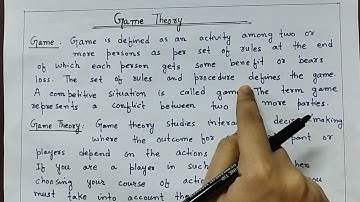 Game Theory
Game : Game is defined as an activity among two or
more persons as per set of rules at the end
of which each person gets some benefit or bears
loss. The set of rules and procedure defines the game.
A competitive situation is called game. The term game
represents a conflict between two more parties.
Game Theory : Game theory studies decision making
where the outcome for part or
players depend on the actions
If you are a player in such
choosing your course of action
must take into account the